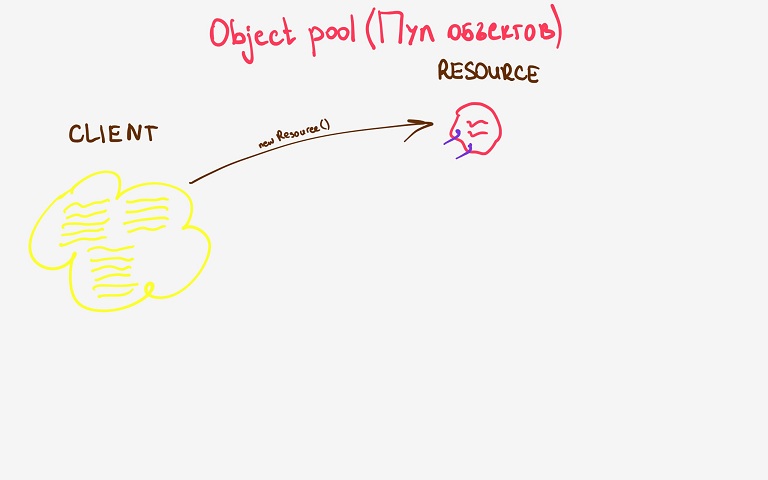 Object pool (Пул объектов)
RESOURCE
CLIENT
new Resource()